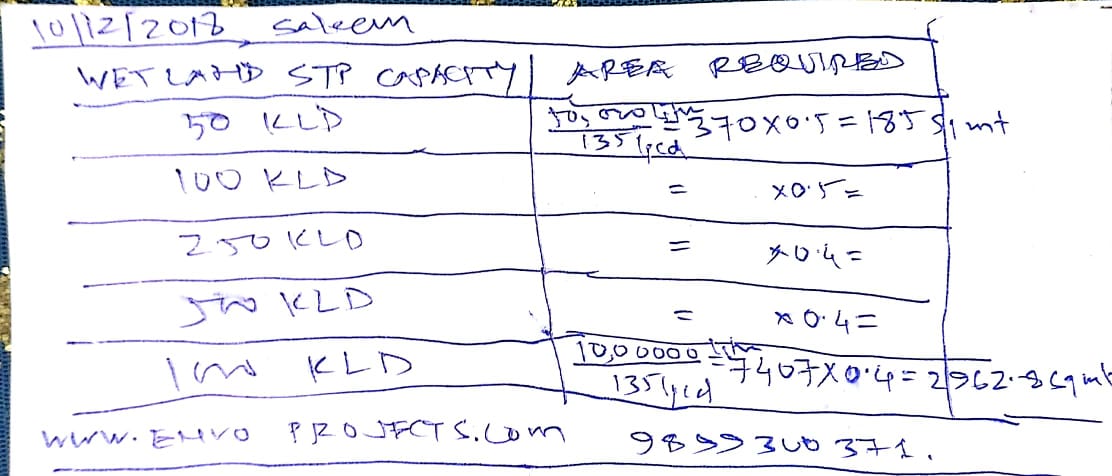 10/12/2018, saleem
WETLAND STP CAPACITY | AREA REQUIRED
50 KLD 50,000 litre/135 lpcd = 370 x 0.5 = 185 sq mt
100 KLD = x0.5 =
250 KLD = x0.4 =
500 KLD = x0.4 =
1000 KLD 10,00000 litre/135 lpcd = 7407 x 0.4 = 2962.8 sq mt
www.ENVO PROJECTS.com 9899300371.